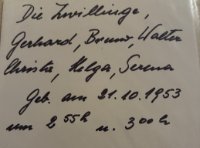 Die Zwillinge,
Gerhard, Bruno, Walter
Christa, Helga, Serena
Geb. am 21.10.1953
um 2 55h u. 3 00h